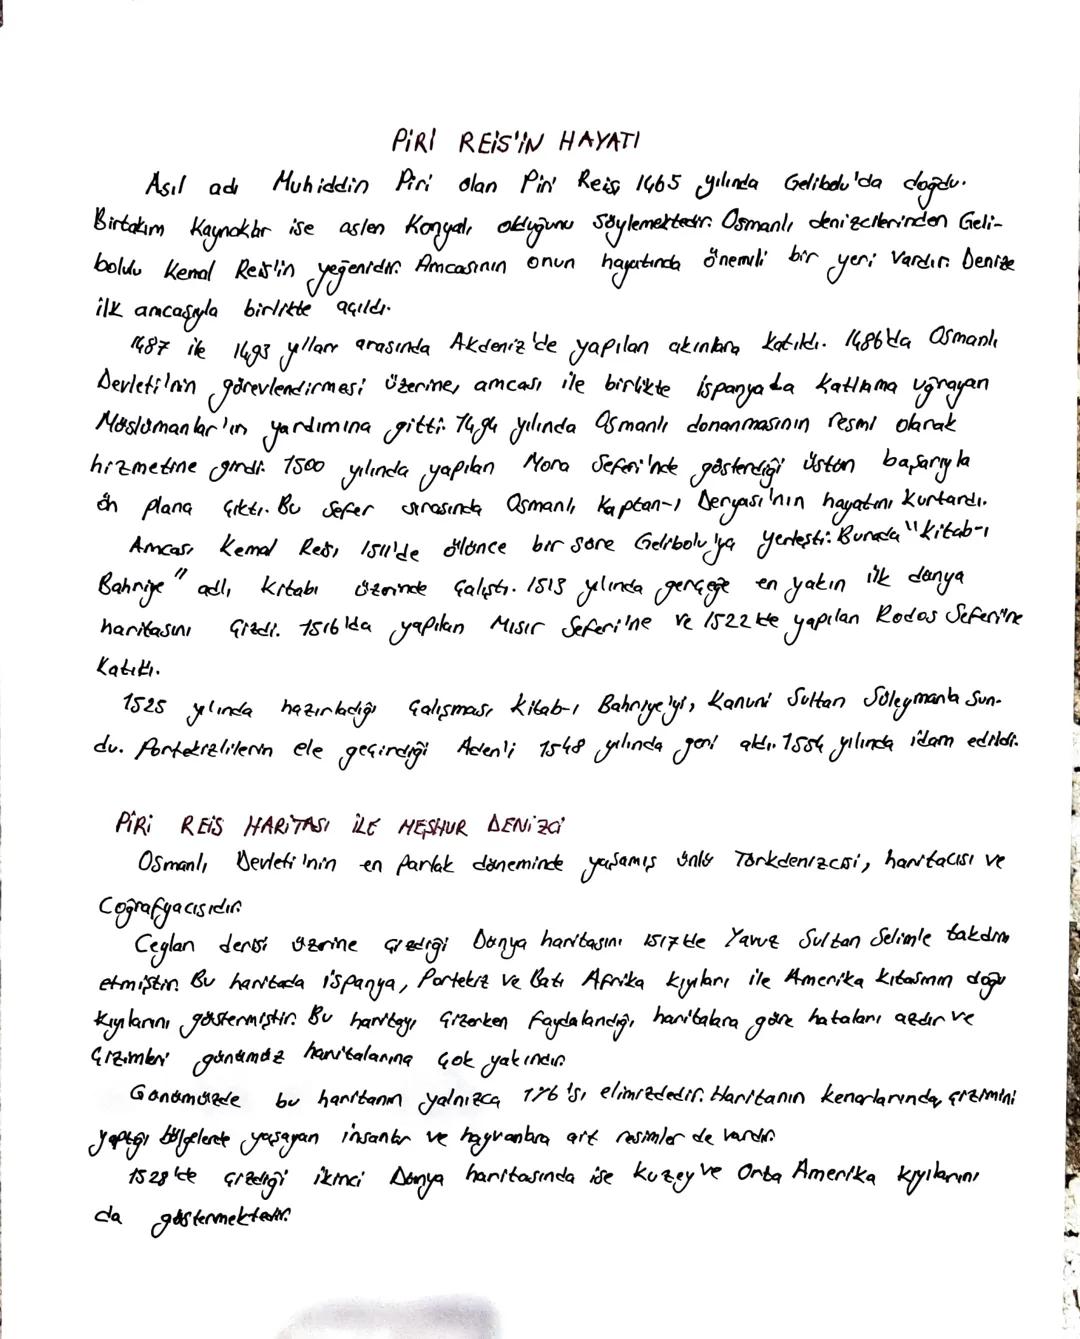 PİRİ REİS'İN HAYATI
Asıl adı Muhiddin Piri olan Piri Reis 1465 yılında Gelibolu'da doğdu.
Birtakım Kaynaklar ise aslen Konyalı olduğunu söylemektedir. Osmanlı denizcilerinden Geli-
bolulu Kemal Reis'in yeğenidir. Amcasının onun hayatında önemli bir yeri vardır. Denize
ilk amcasıyla birlikte açıldı.
1487 ile 1493 yılları arasında Akdeniz'de yapılan akınlara katıldı. 1486'da Osmanlı
Devleti'nin görevlendirmesi üzerine, amcası ile birlikte İspanya'da katliama uğrayan
Müslümanlar'ın yardımına gitti. 1494 yılında Osmanlı donanmasının resmi olarak
hizmetine girdi. 1500 yılında yapılan Mora Seferi'nde gösterdiği üstün başarıyla
ön plana çıktı. Bu sefer sırasında Osmanlı Kaptan-ı Deryası'nın hayatını kurtardı.
Amcası Kemal Reis, 1511'de ölünce bir süre Gelibolu'ya yerleşti. Burada "Kitab-ı
Bahriye" adlı kitabı üzerinde çalıştı. 1513 yılında gerçeğe en yakın ilk dünya
haritasını çizdi. 1516'da yapılan Mısır Seferi'ne ve 1522'de yapılan Rodos Seferi'ne
Katıldı.
1525 yılında hazırladığı çalışması Kitab-ı Bahriye'yi, Kanuni Sultan Süleyman'a Sun-
du. Portekizlilerin ele geçirdiği Aden'i 1548 yılında geri aldı. 1554 yılında idam edildi.
PİRİ REİS HARİTASI İLE MEŞHUR DENİZCİ
Osmanlı Devleti'nin en Parlak döneminde yaşamış ünlü Türkdenizcisi, haritacısı ve
Coğrafyacısıdır.
Ceylan derisi üzerine çizdiği Dünya haritasını 1517'de Yavuz Sultan Selim'e takdim
etmiştir. Bu haritada İspanya, Portekiz ve Batı Afrika kıyıları ile Amerika kıtasının doğu
kıyılarını göstermiştir. Bu haritayı çizerken faydalandığı haritalara göre hataları azdır ve
çizimleri günümüz haritalarına çok yakındır.
Günümüzde bu haritanın yalnızca 1/6'sı elimizdedir. Haritanın kenarlarında, çizimini
yaptığı bölgelerde yaşayan insanlar ve hayvanlara ait resimler de vardır.
1528'de çizdiği ikinci Dünya haritasında ise Kuzey ve Orta Amerika kıyılarını
da göstermektedir.